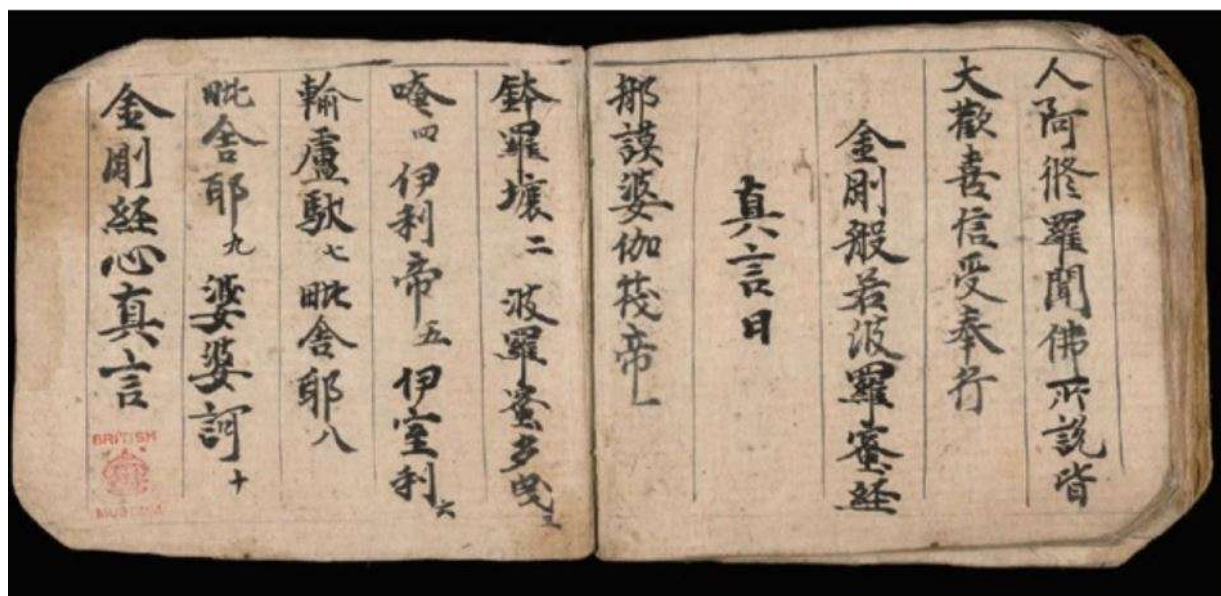 人阿修羅聞佛所說皆
大歡喜信受奉行
金剛般若波羅蜜経
真言曰
那謨婆伽筏帝一
鉢羅壤二 波羅蜜多曳三
唵四 伊利帝五 伊室利六
輸盧馱七 毗舍耶八
毗舍耶九 婆婆訶十
金剛経心真言
BRITISH
MUSEUM